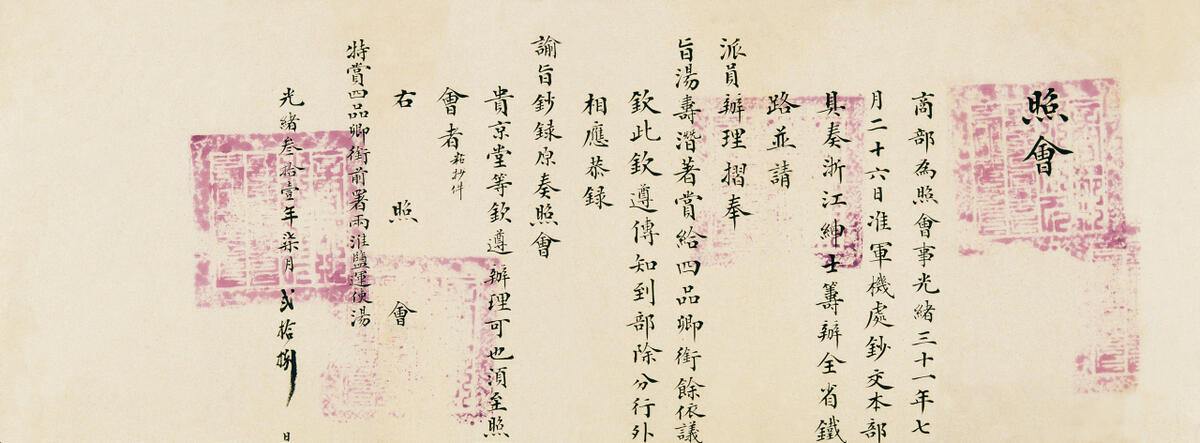 照會
商部為照會事光緒三十一年七
月二十六日准軍機處鈔交本部
具奏浙江紳士籌辦全省鐵
路並請
派員辦理摺奉
旨湯壽潛著賞給四品卿銜餘依議
欽此欽遵傳知到部除分行外
相應恭錄
諭旨鈔錄原奏照會
貴京堂等欽遵辦理可也須至照
會者粘抄件
右照會
特賞四品卿銜前署兩淮鹽運使湯
光緒叁拾壹年柒月貳拾捌日